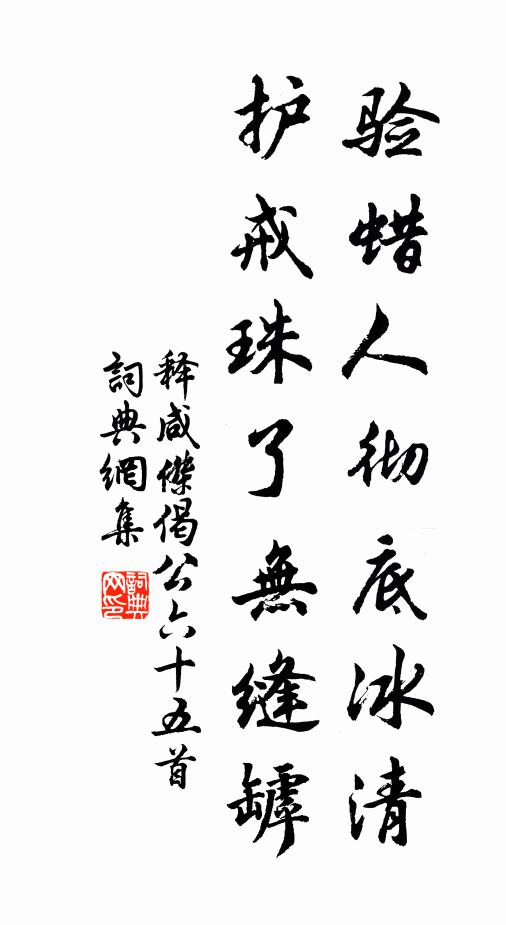 验蜡人彻底冰清
护戒珠了無缝罅
释咸傑偈公六十五首
詞典網集
詞典网印